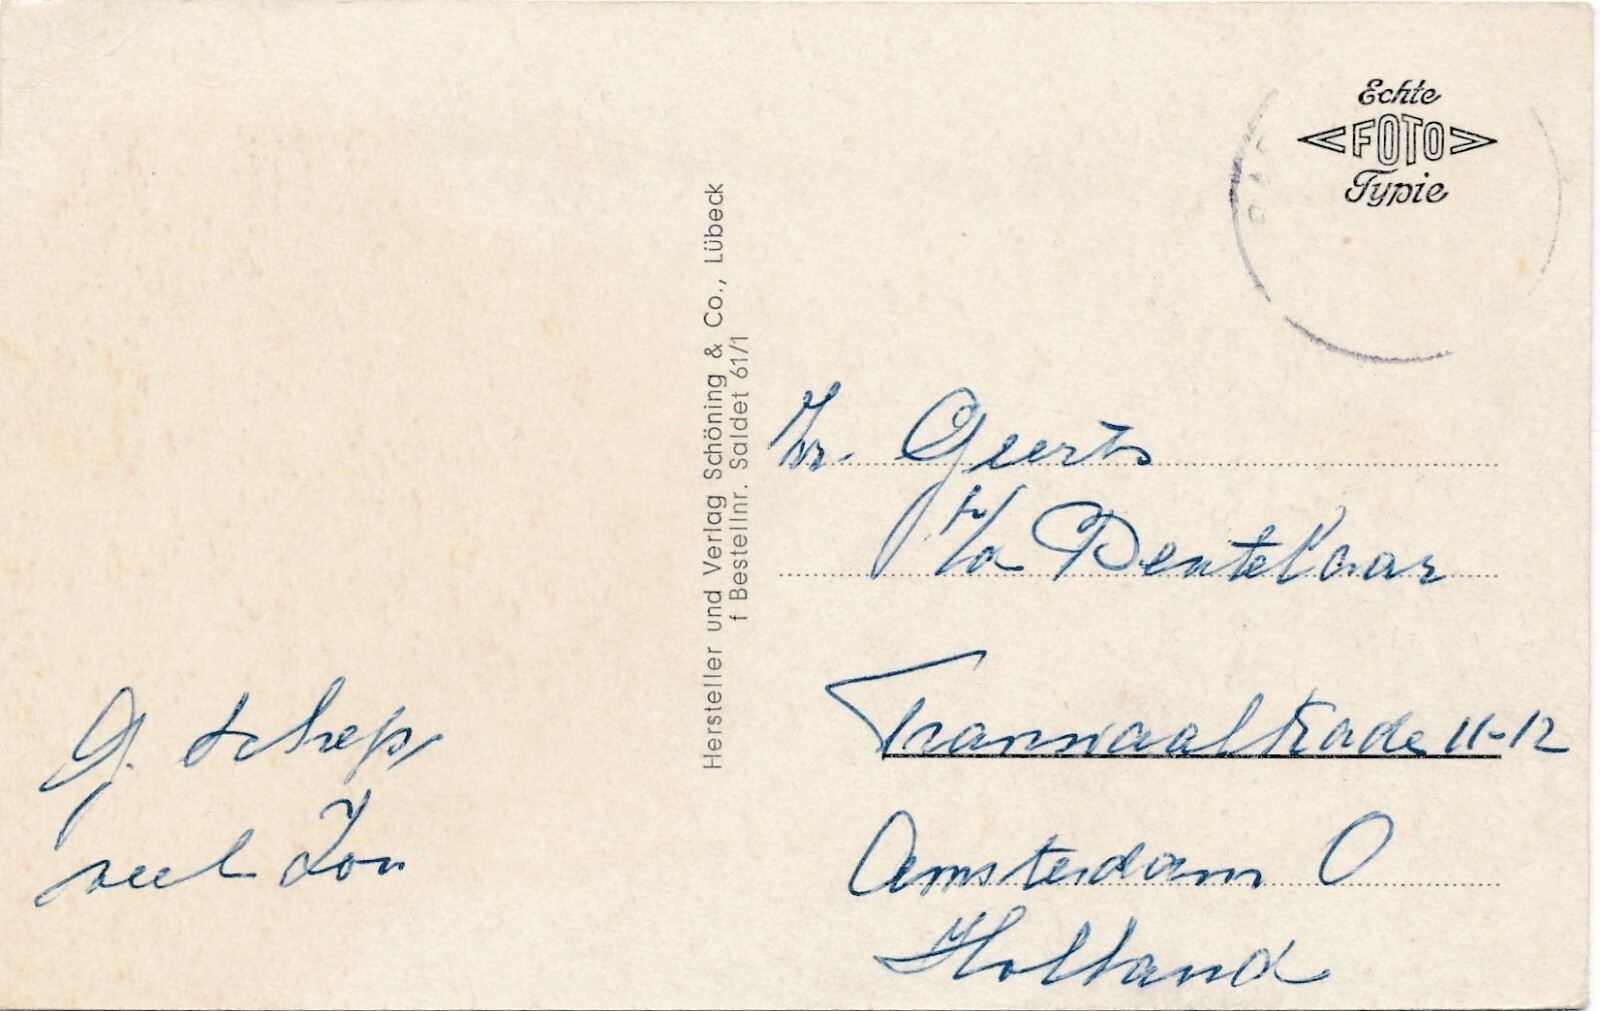 Echte
FOTO
Typie
Hersteller und Verlag Schöning & Co., Lübeck
f Bestellnr. Saldet 61/1
Geerts
Pentelkaar
Transvaalkade 11-12
Amsterdam O
Holland
G. Schep
veel Zon